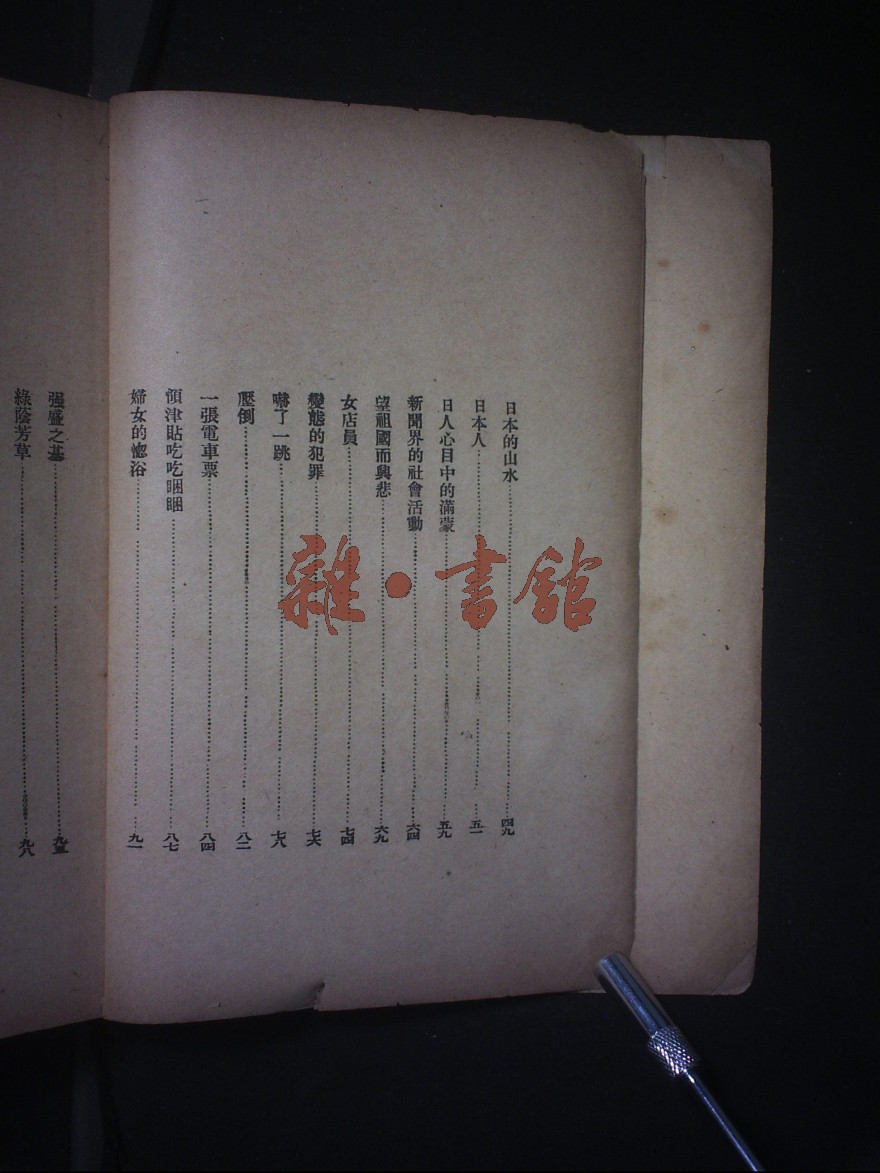 日本的山水……四九
日本人……五一
日人心目中的滿蒙……五九
新聞界的社會活動……六四
望祖國而興悲……六九
女店員……七四
變態的犯罪……七六
嚇了一跳……七八
壓倒……八二
一張電車票……八四
領津貼吃吃睏睏……八七
婦女的惚浴……九一
强盛之基……九五
綠蔭芳草……九八
雜·書館